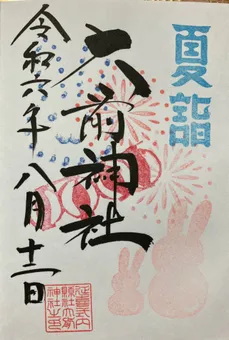 夏詣
大前神社
令和六年八月十一日
延喜式内
縣社大前